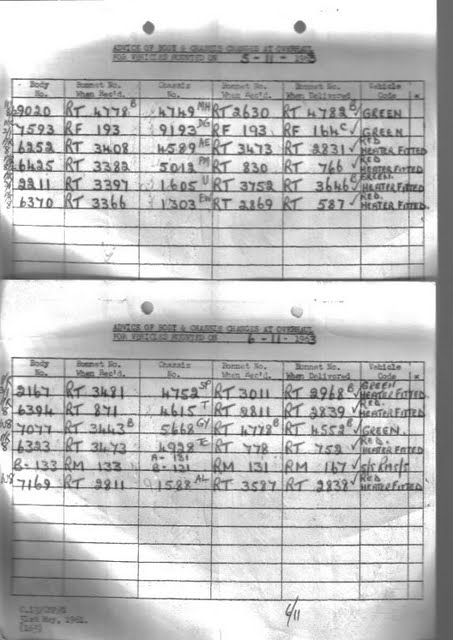 ADVICE OF BODY & CHASSIS CHANGES AT OVERHAUL
FOR VEHICLES MOUNTED ON 5-11-1963
Body No. Bonnet No. When Rec'd. Chassis No. Bonnet No. When Rec'd. Bonnet No. When Delivered Vehicle Code *
9020 RT 4778 B 4749 MH RT 2630 RT 4782 B ✓ GREEN
7593 RF 193 9193 DG RF 193 RF 164 C ✓ GREEN
6252 RT 3408 4589 AE RT 3473 RT 2831 ✓ RED HEATER FITTED
6425 RT 3382 5012 PM RT 830 RT 766 ✓ RED HEATER FITTED
2211 RT 3397 1605 U RT 3752 RT 3646 B ✓ GREEN HEATER FITTED
6370 RT 3366 1303 EW RT 2869 RT 587 ✓ RED. HEATER FITTED.
ADVICE OF BODY & CHASSIS CHANGES AT OVERHAUL
FOR VEHICLES MOUNTED ON 6-11-1963
Body No. Bonnet No. When Rec'd. Chassis No. Bonnet No. When Rec'd. Bonnet No. When Delivered Vehicle Code *
2167 RT 3481 4752 SP RT 3011 RT 2968 B ✓ GREEN HEATER FITTED
6394 RT 871 4615 T RT 2811 RT 2839 ✓ RED. HEATER FITTED
7077 RT 3443 B 5668 GY RT 4778 B RT 4552 B ✓ GREEN.
6323 RT 3473 4928 RT 778 RT 752 ✓ RED. HEATER FITTED
B-133 RM 133 A-131 B-131 RM 131 RM 167 ✓
7169 RT 2811 1588 AL RT 3587 RT 2838 ✓ RED HEATER FITTED
31st May, 1961.
6/11